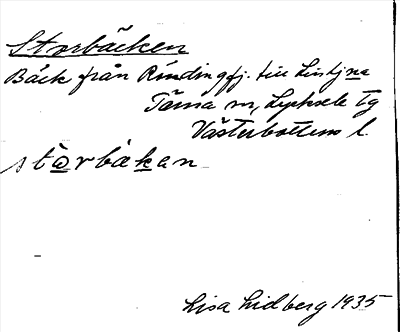 Storbäcken
Bäck från Rindingfj. till
Tärna sn, Lycksele tg
Västerbottens l.
stɷrbäkan
Lisa Lidberg 1935